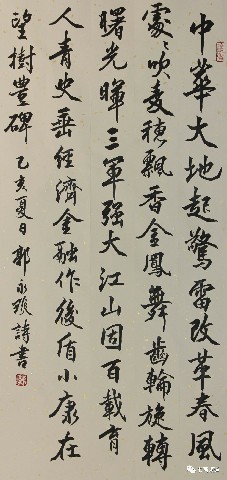 中華大地起驚雷改革春風
處〻吹麦穗飄香金鳳舞齒輪旋轉
曙光暉三軍强大江山固百載育
人青史垂經濟金融作後盾小康在
望樹豐碑 乙亥夏日 郭永 詩書